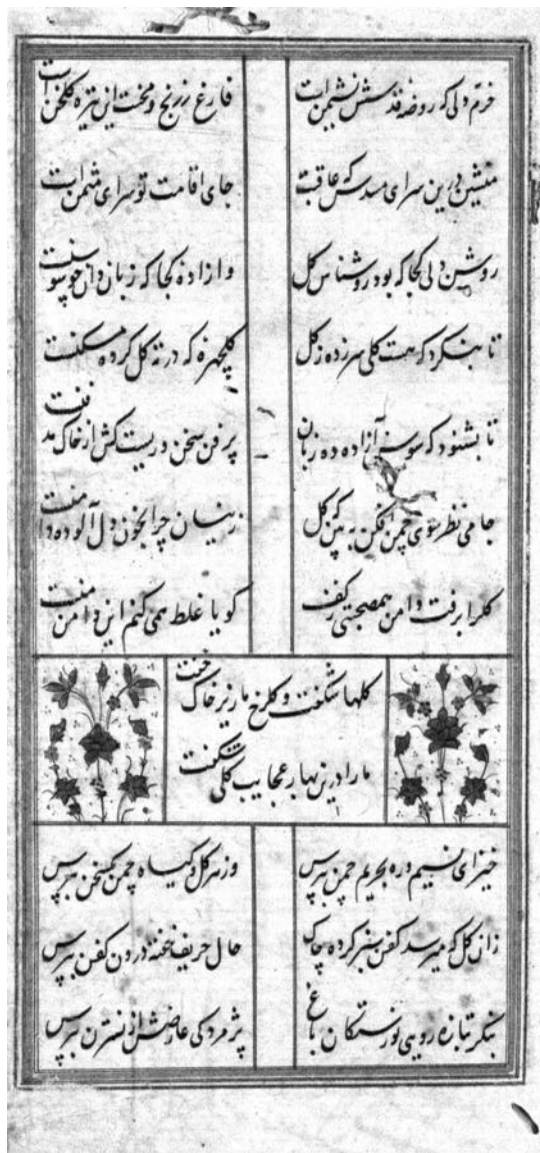 خرم دلی که روضه قدسش نشیمن است
فارغ ز رنج و محنت این تیره گلخن است
منشین درین سرای مسدس که عاقبت
جای اقامت تو سرای مثمن است
روشن دلی کجا که بود روشناس گل
وآزاده کجا که زبان دان سوسنست
تا بنگرد که هست گلی سر زده ز گل
گلچهره که در ته گل کرده مسکنست
تا بشنود که سوسن آزاده ده زبان
پر فن سخن وریست کش از خاک مدفنست
جامی نظر سوی چمن فکن به بین که گل
زینسان چرا بخون دل آلوده دامنست
گلرا برفت دامن همصحبتی ز کف
گویا غلط همی کنم این دامن منست
گلها شکفت و گلرخ ما زیر خاک خفت
ما را درین بهار عجایب گلی شکفت
خیز ای نسیم در بحریم چمن بپرس
وز هر گل و گیاه چمن سخن بپرس
زان گل که میرسد کفن سبز کرده چاک
حال حریف خفته درون کفن بپرس
بنگر بتازه رویی نورستگان باغ
پژمردگی عارضش از نسترن بپرس